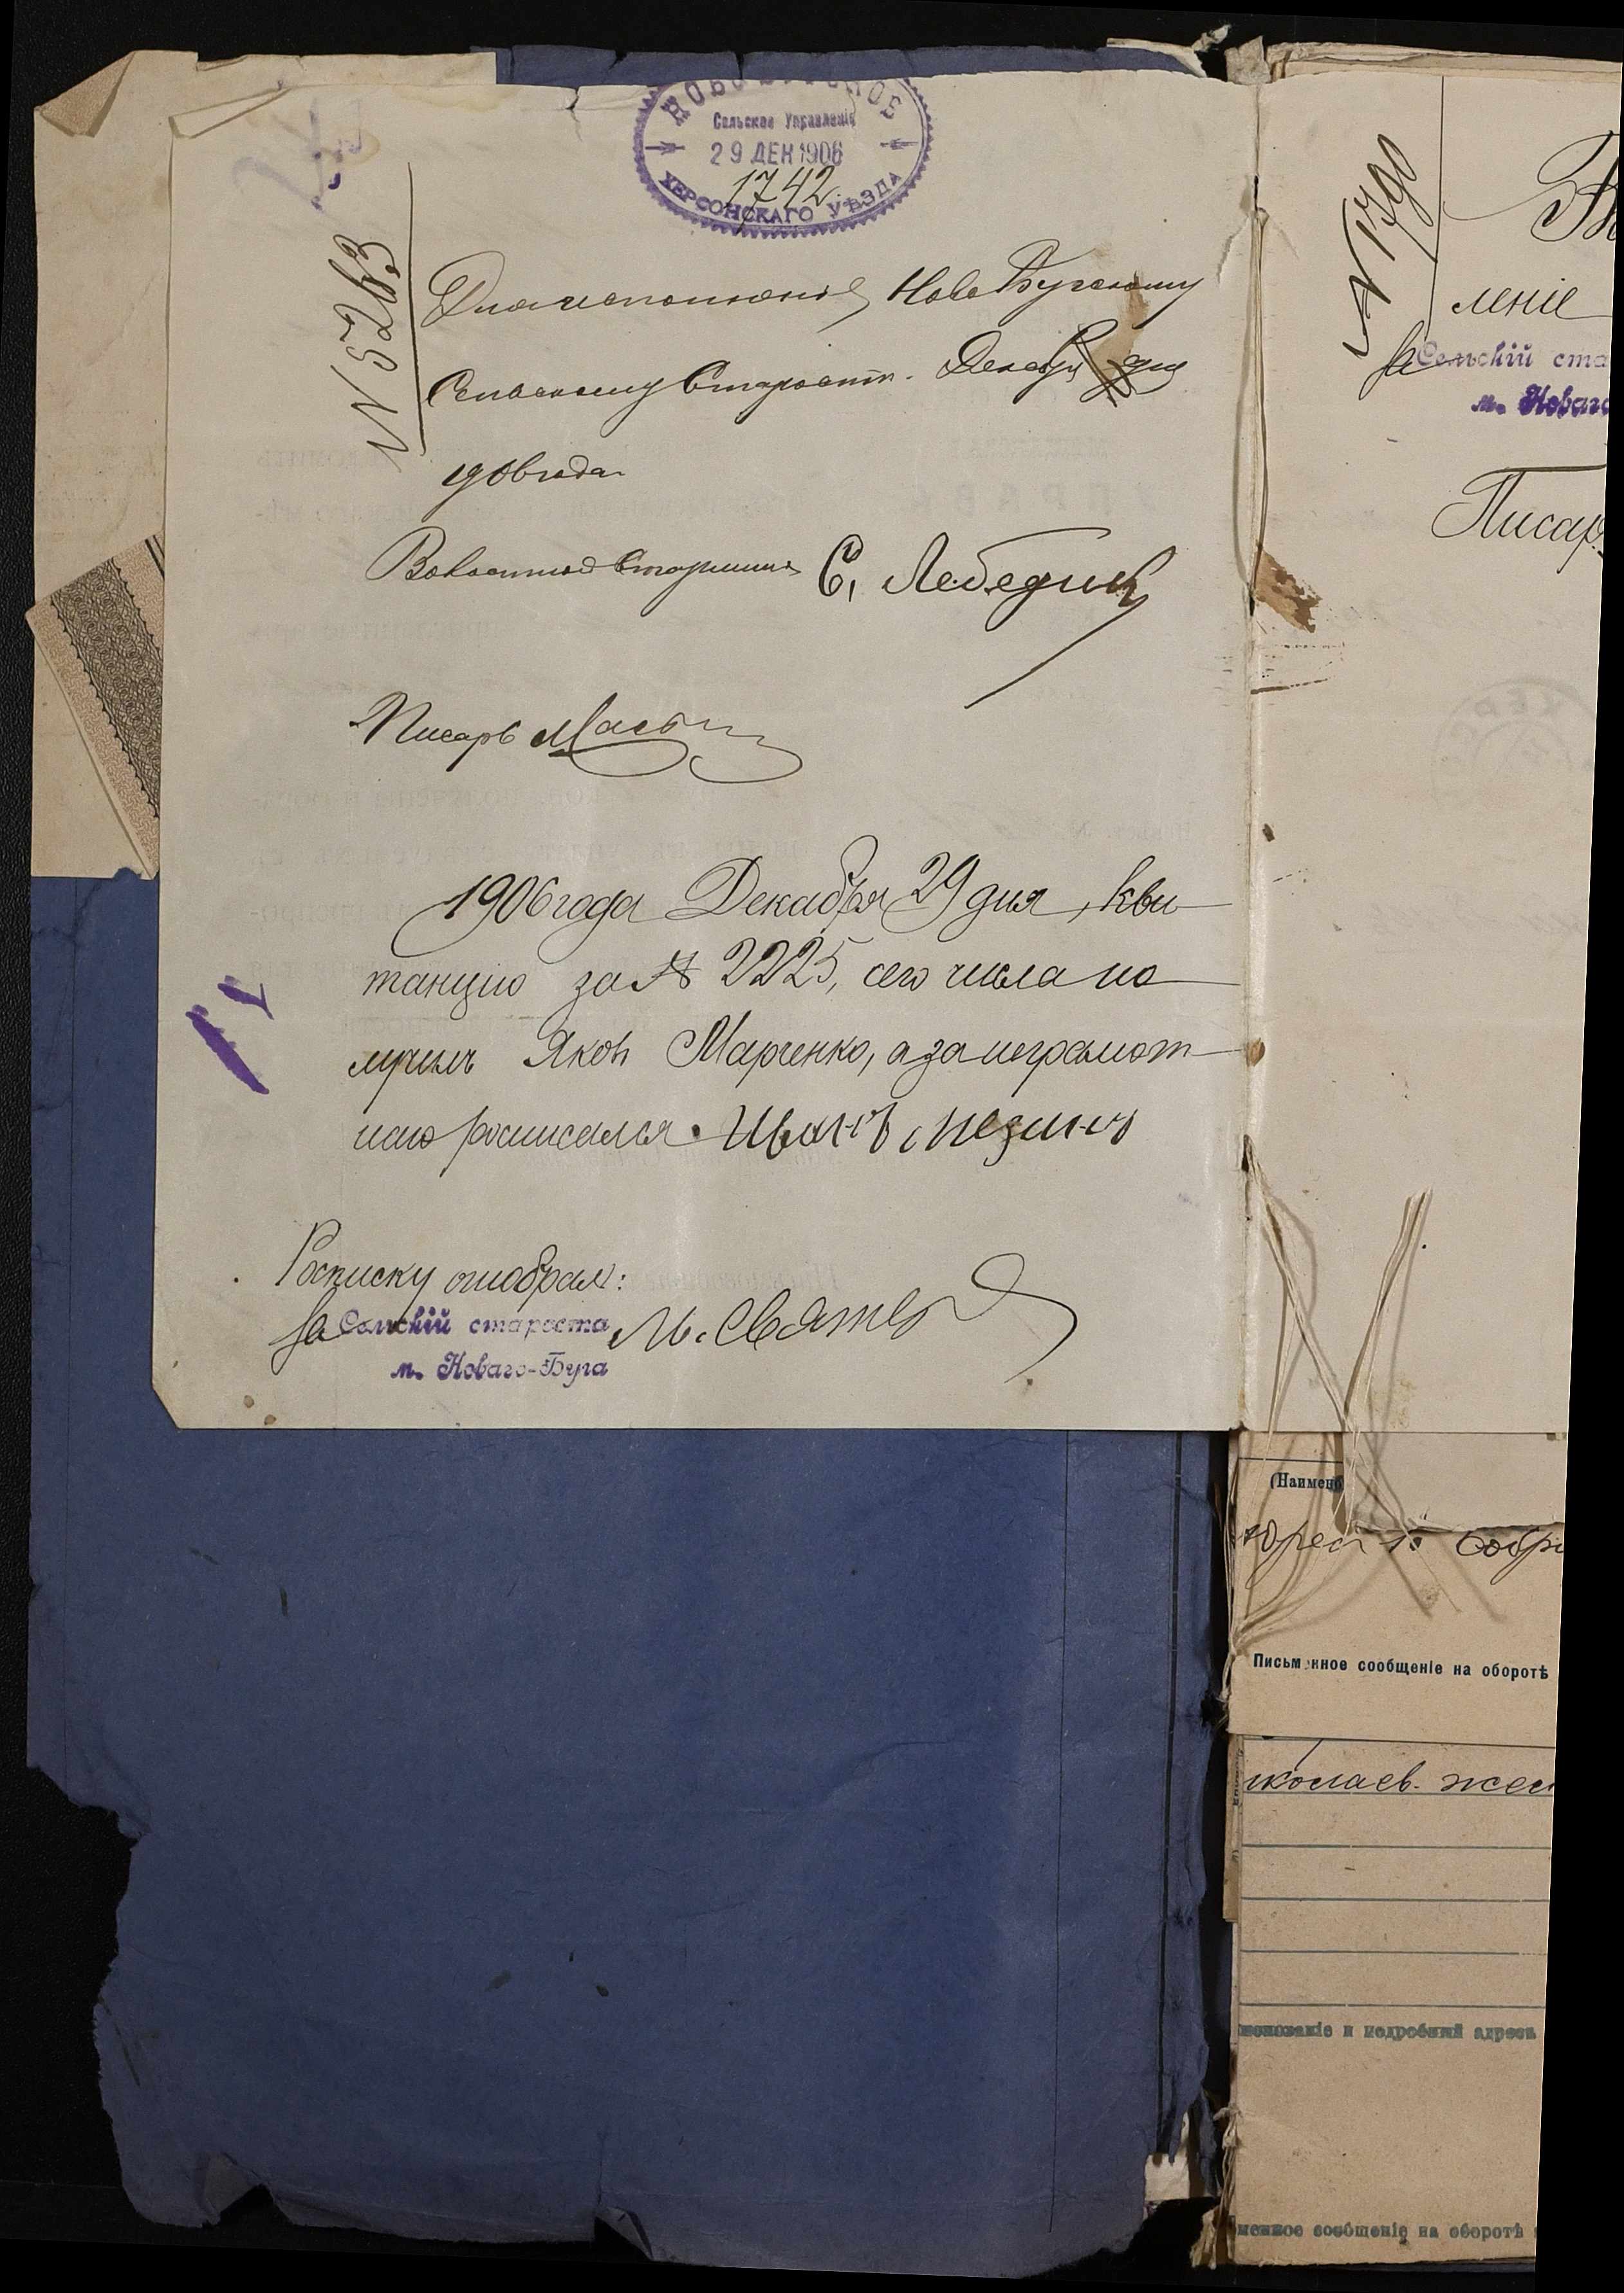 НОВОБУГСКОЕ
Сельское Управленіе
29 ДЕК 1906
1742
ХЕРСОНСКАГО УѢЗДА
N 5263
Для исполненія Ново Бугскому
Сельскому Старостѣ. Декабря дня
1906 года
Волостной Старшина С. Лебедин
Писарь
1906 года Декабря 29 дня, кви
танцію за № 2225, сего числа по
лучилъ Яковъ Марченко, а за неграмот
наго росписался Иванъ
Росписку отобралъ:
За Сельскій староста М. Святе
м. Новаго-Буга
N 1790
леніе
За Сельскій ста
м. Новаго
Писар
(Наимено
Собр
Письменное сообщеніе на оборотѣ
иколаев. жел
менованіе и подробный адресъ
менное сообщеніе на оборотѣ